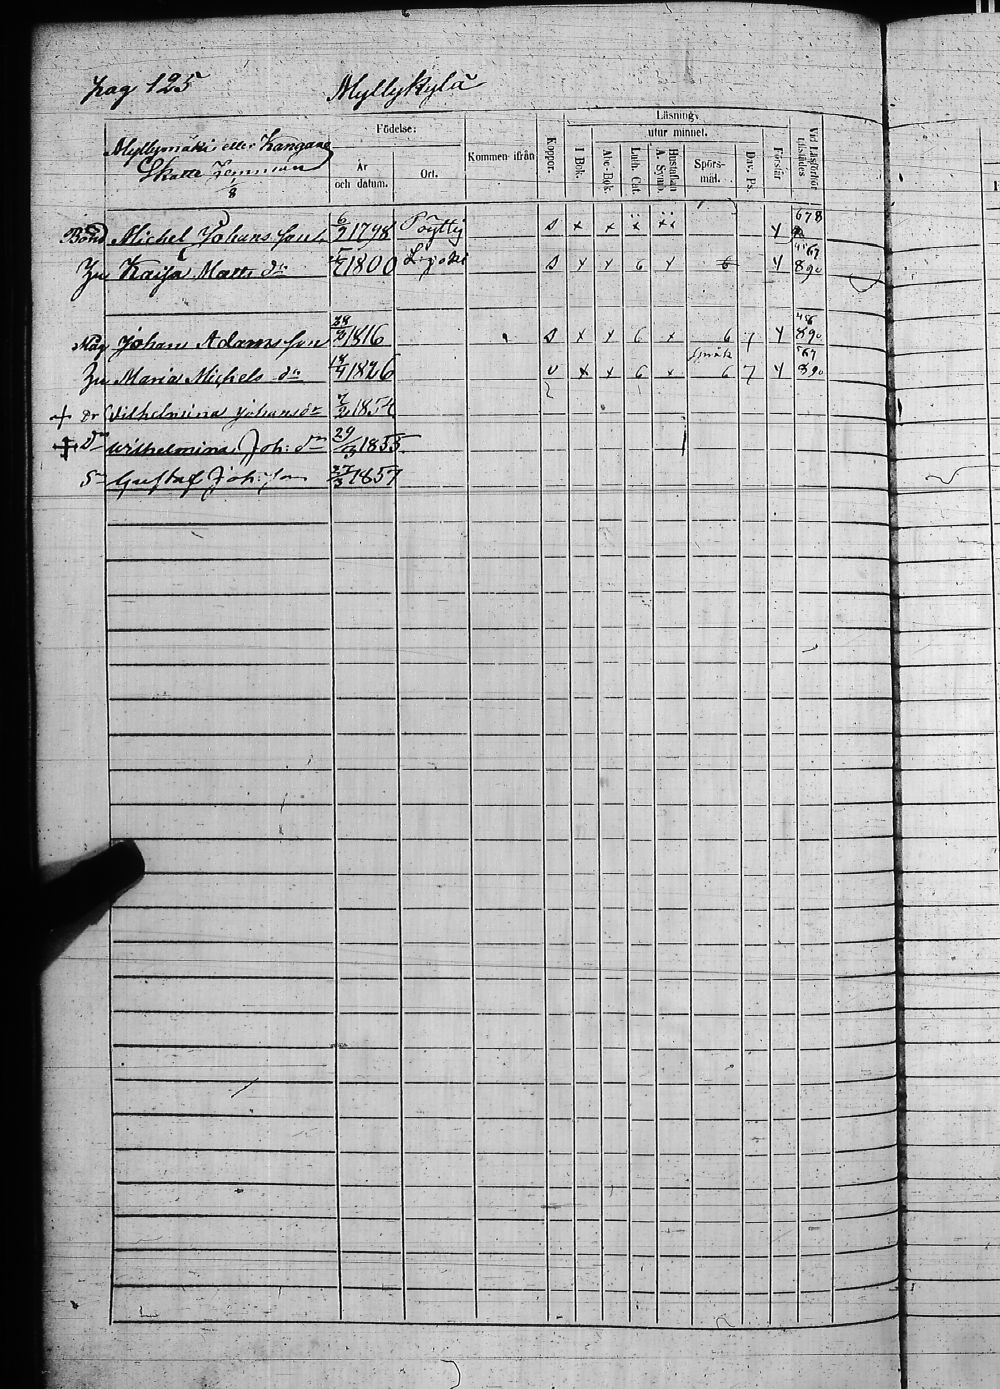 pag 125 Myllykylä
Myllymäki eller Kangare
Skatte Hemman
1/8
Födelse:
År och datum.
Ort.
Kommen ifrån
Koppor.
Läsning,
utur minnet.
I Bok.
Abc-Bok.
Luth. Cat.
Hustaflan A. Symb.
Spörsmål.
Dav. Ps.
Förstår
Vid Läsförhör tillstädes
Bond Michel Johansson 6/2 1798 Pöytty s x x 678
Hu Kaisa Matts dr 1800 Lojoki s 6 6 67 890
Måg Johan Adamsson 28/3 1816 s x 6 x 6 7 48 890
språk
Hu Maria Michels dr 18/4 1826 v x x 6 x 6 7 67 890
+ Dr Vilhelmina Johans dr 1854
+ Dr Wilhelmina Joh: dr 29/3 1855
Sn Gustaf Joh:son 27/3 1857